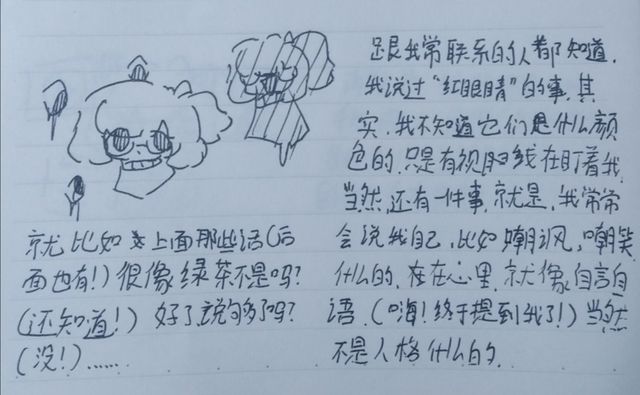 跟我常联系的人都知道.
我说过“红眼睛”的事.其
实.我不知道它们是什么颜
色的.只是有视线在盯着我.
当然,还有一件事.就是.我常常
会说我自己.比如嘲讽,嘲笑
什么的.在在心里.就像自言自
语.(嗨!终于提到我了!)当然
不是人格什么的.
就比如上面那些话(后
面也有!)很像绿茶不是吗?
(还知道!)好了说够了吗?
(没!)……